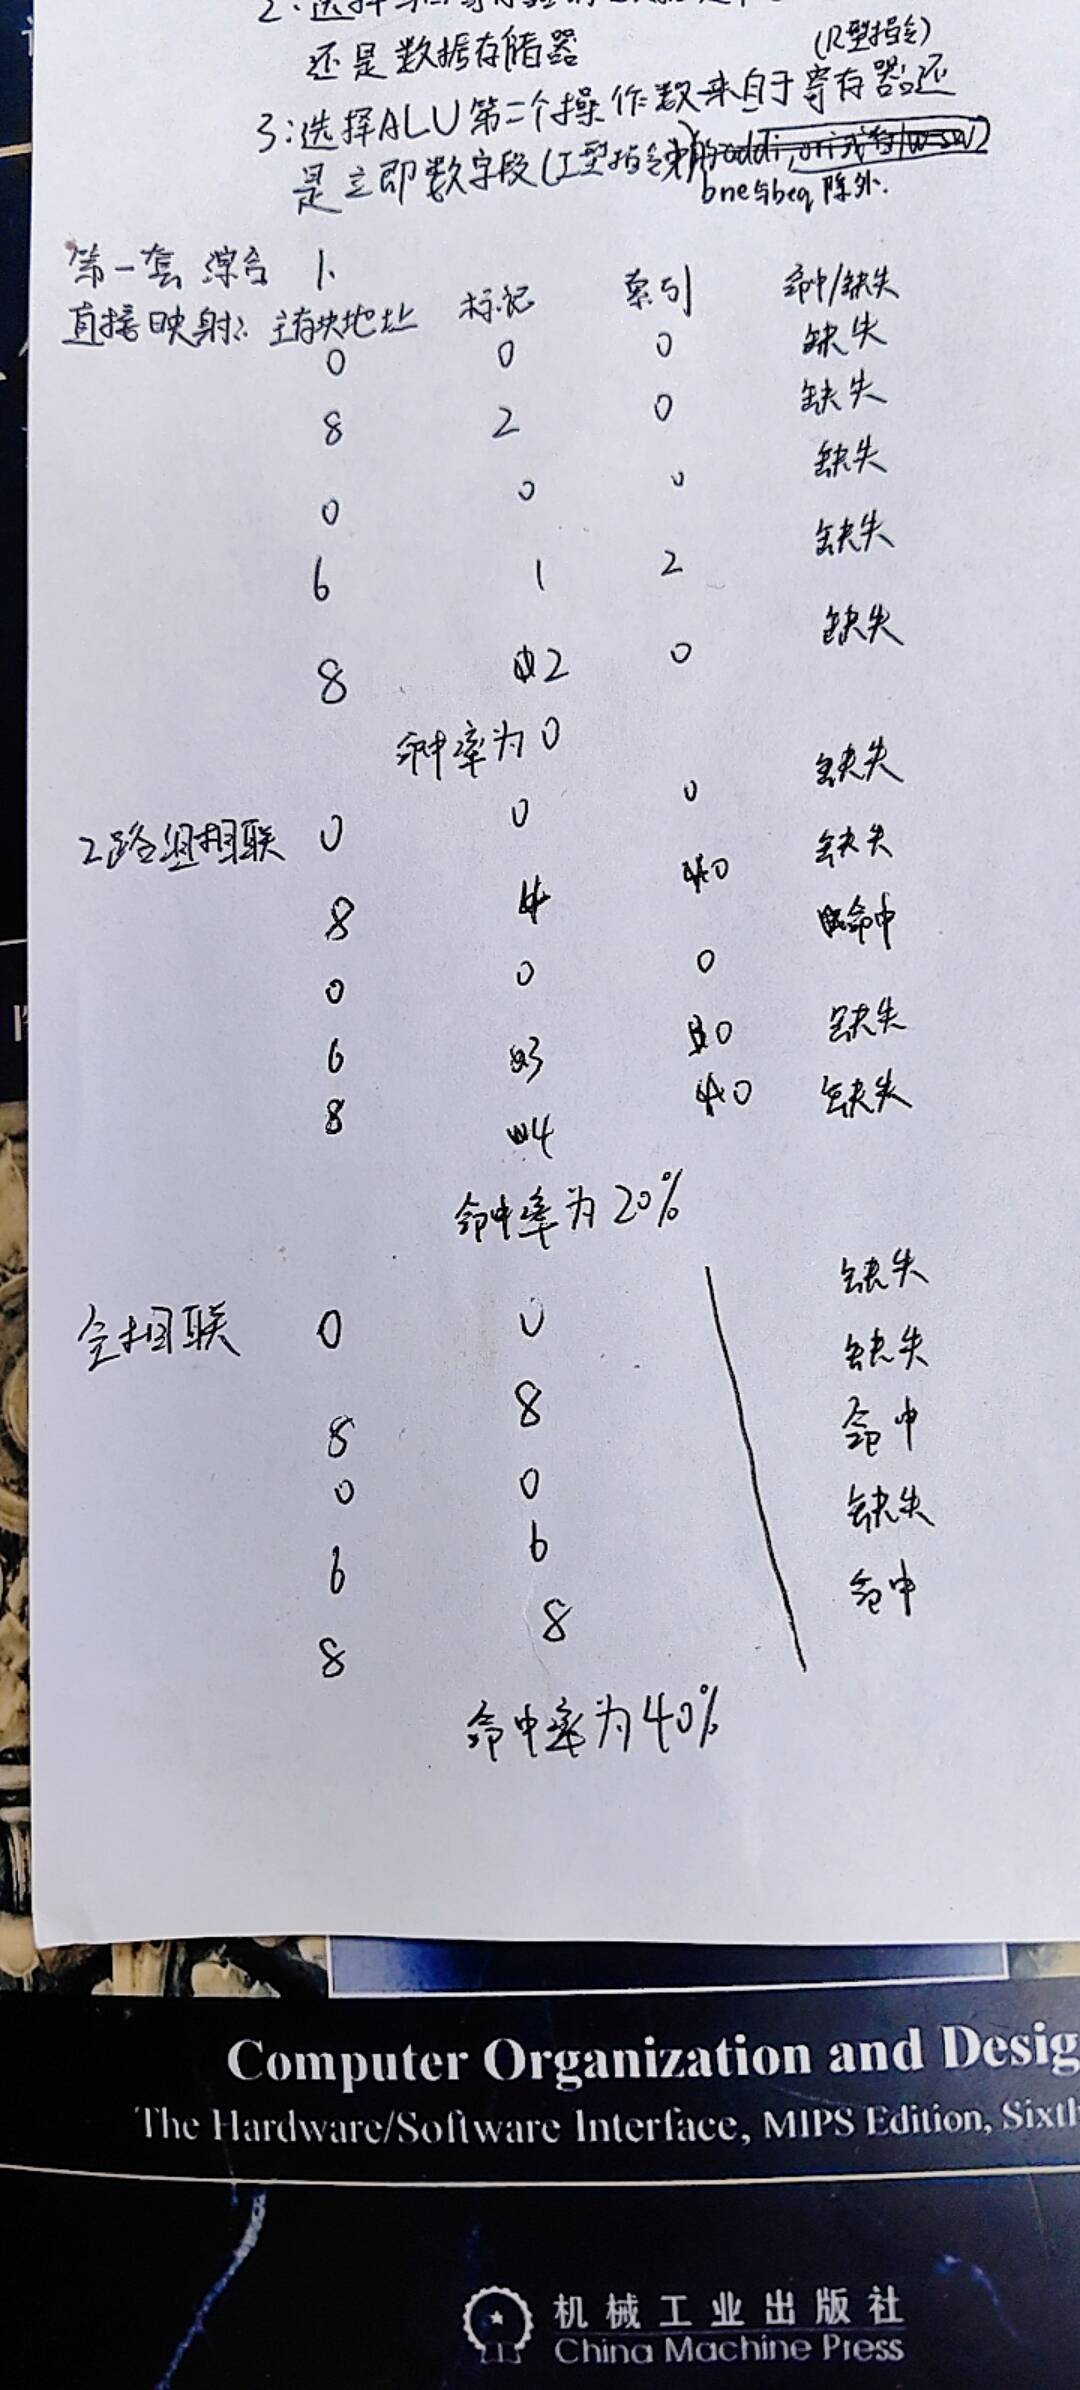 还是数据存储器
(R型指令)
3:选择ALU第二个操作数来自于寄存器还
是立即数字段(I型指令)
bne与beq除外.
第一套 综合 1.
直接映射: 主存块地址 标记 索引 命中/缺失
0 0 0 缺失
8 2 0 缺失
0 0 0 缺失
6 1 2 缺失
8 2 0 缺失
命中率为0
2路组相联 0 0 0 缺失
8 4 0 缺失
0 0 0 命中
6 3 0 缺失
8 4 0 缺失
命中率为20%
全相联 0 0 缺失
8 8 缺失
0 0 命中
6 6 缺失
8 8 命中
命中率为40%
Computer Organization and Desig
The Hardware/Software Interface, MIPS Edition, Sixth
机械工业出版社
China Machine Press